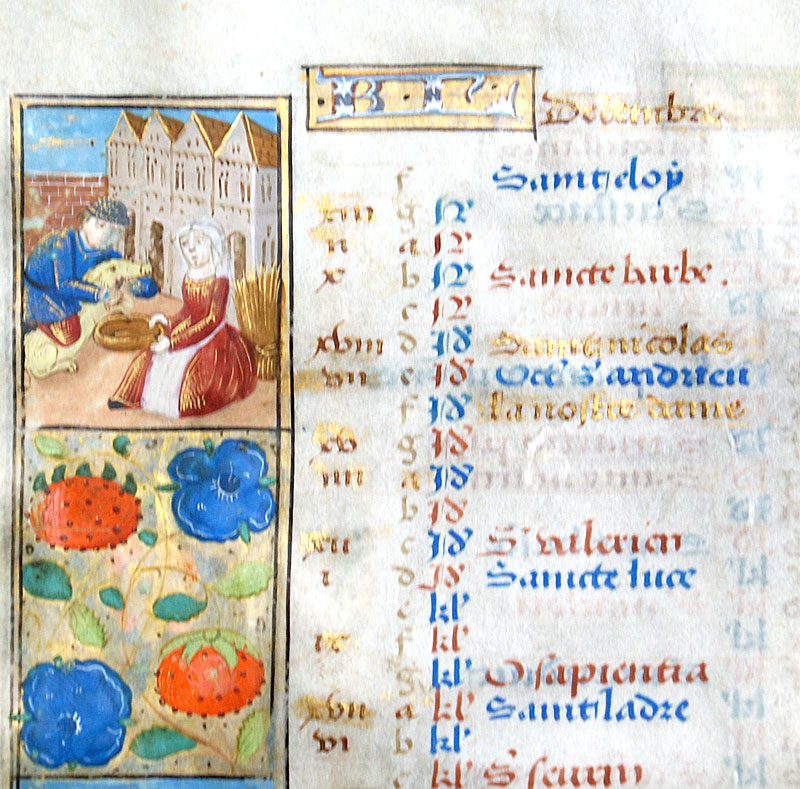 KL Decembre
f Saint eloy
xiii g N
ii a N
x b N Saincte barbe .
c N
xviii d Id Saint nicolas
vii e Id Oct' s' andrieu
f Id la nostre dame
xv g Id
iiii a Id
b Id
xii c Id S' valerien
i d Id Saincte luce
e kl'
ix f kl'
g kl' O sapientia
xvii a kl' Saint ladre
vi b kl'
c kl' S' seurin